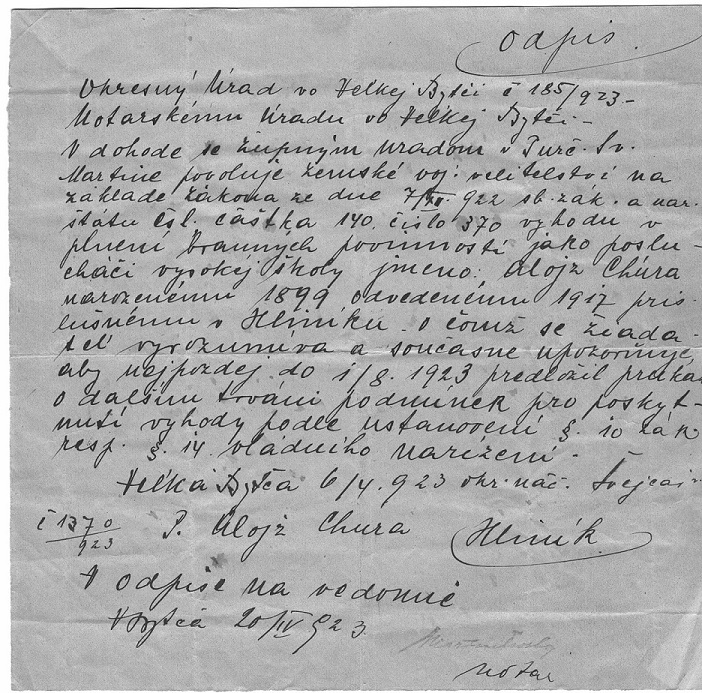 Odpis.
Okresný Úrad vo Veľkej Bytči č 185/923-
Notarskému Úradu vo Veľkej Bytči.-
V dohode se župným uradom v Turč. Sv.
Martine povoluje zemské voj. velitelství na
základe zákona ze dne 7/XII. 922 sb. zák. a nar.
štátu čsl. častka 140. čislo 370 vyhodu v
plneni branných povinností jako poslu-
cháči vysokéj školy jmeno: Alojz Chúra
narozenému 1899 odvedenému 1917 pris-
lušnému v Hliníku. o čomž se žiada-
teľ vyrozumiva a současne upozorňuje,
aby najpozdej do 1/8. 1923 predložil prukaz
o dalším trváni podmínek pro poskyt-
nutí vyhody podle ustanovení §. 10 zák
resp. §. 14. vládního narízení.
Veľká Bytča 6/4. 923 okr. náč. Švejcar
č 1370/923 P. Alojz Chura Hliník.
V odpise na vedomie
V Bytča 20/IV 923.
notar